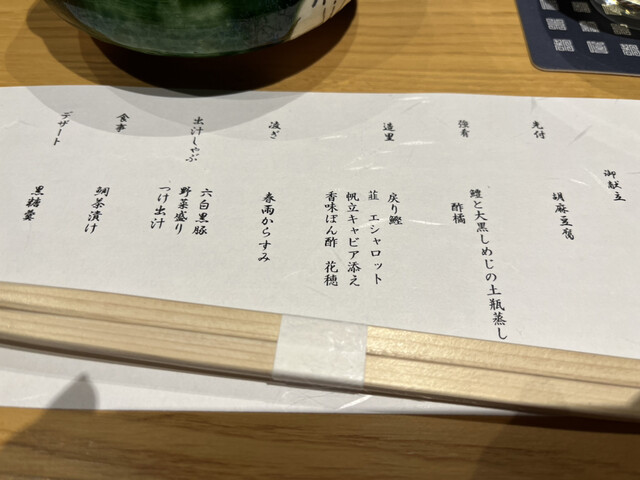 御献立
先付
胡麻豆腐
強肴
鱧と大黒しめじの土瓶蒸し
酢橘
造里
戻り鰹
韮 エシャロット
帆立キャビア添え
香味ぽん酢 花穂
凌ぎ
春雨からすみ
出汁しゃぶ
六白黒豚
野菜盛り
つけ出汁
食事
鯛茶漬け
デザート
黒糖羹